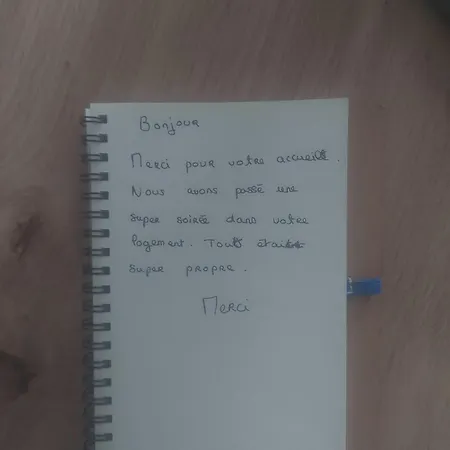 Bonjour
Merci pour votre accueil.
Nous avons passé une
super soirée dans votre
logement. Tout était
super propre.
Merci